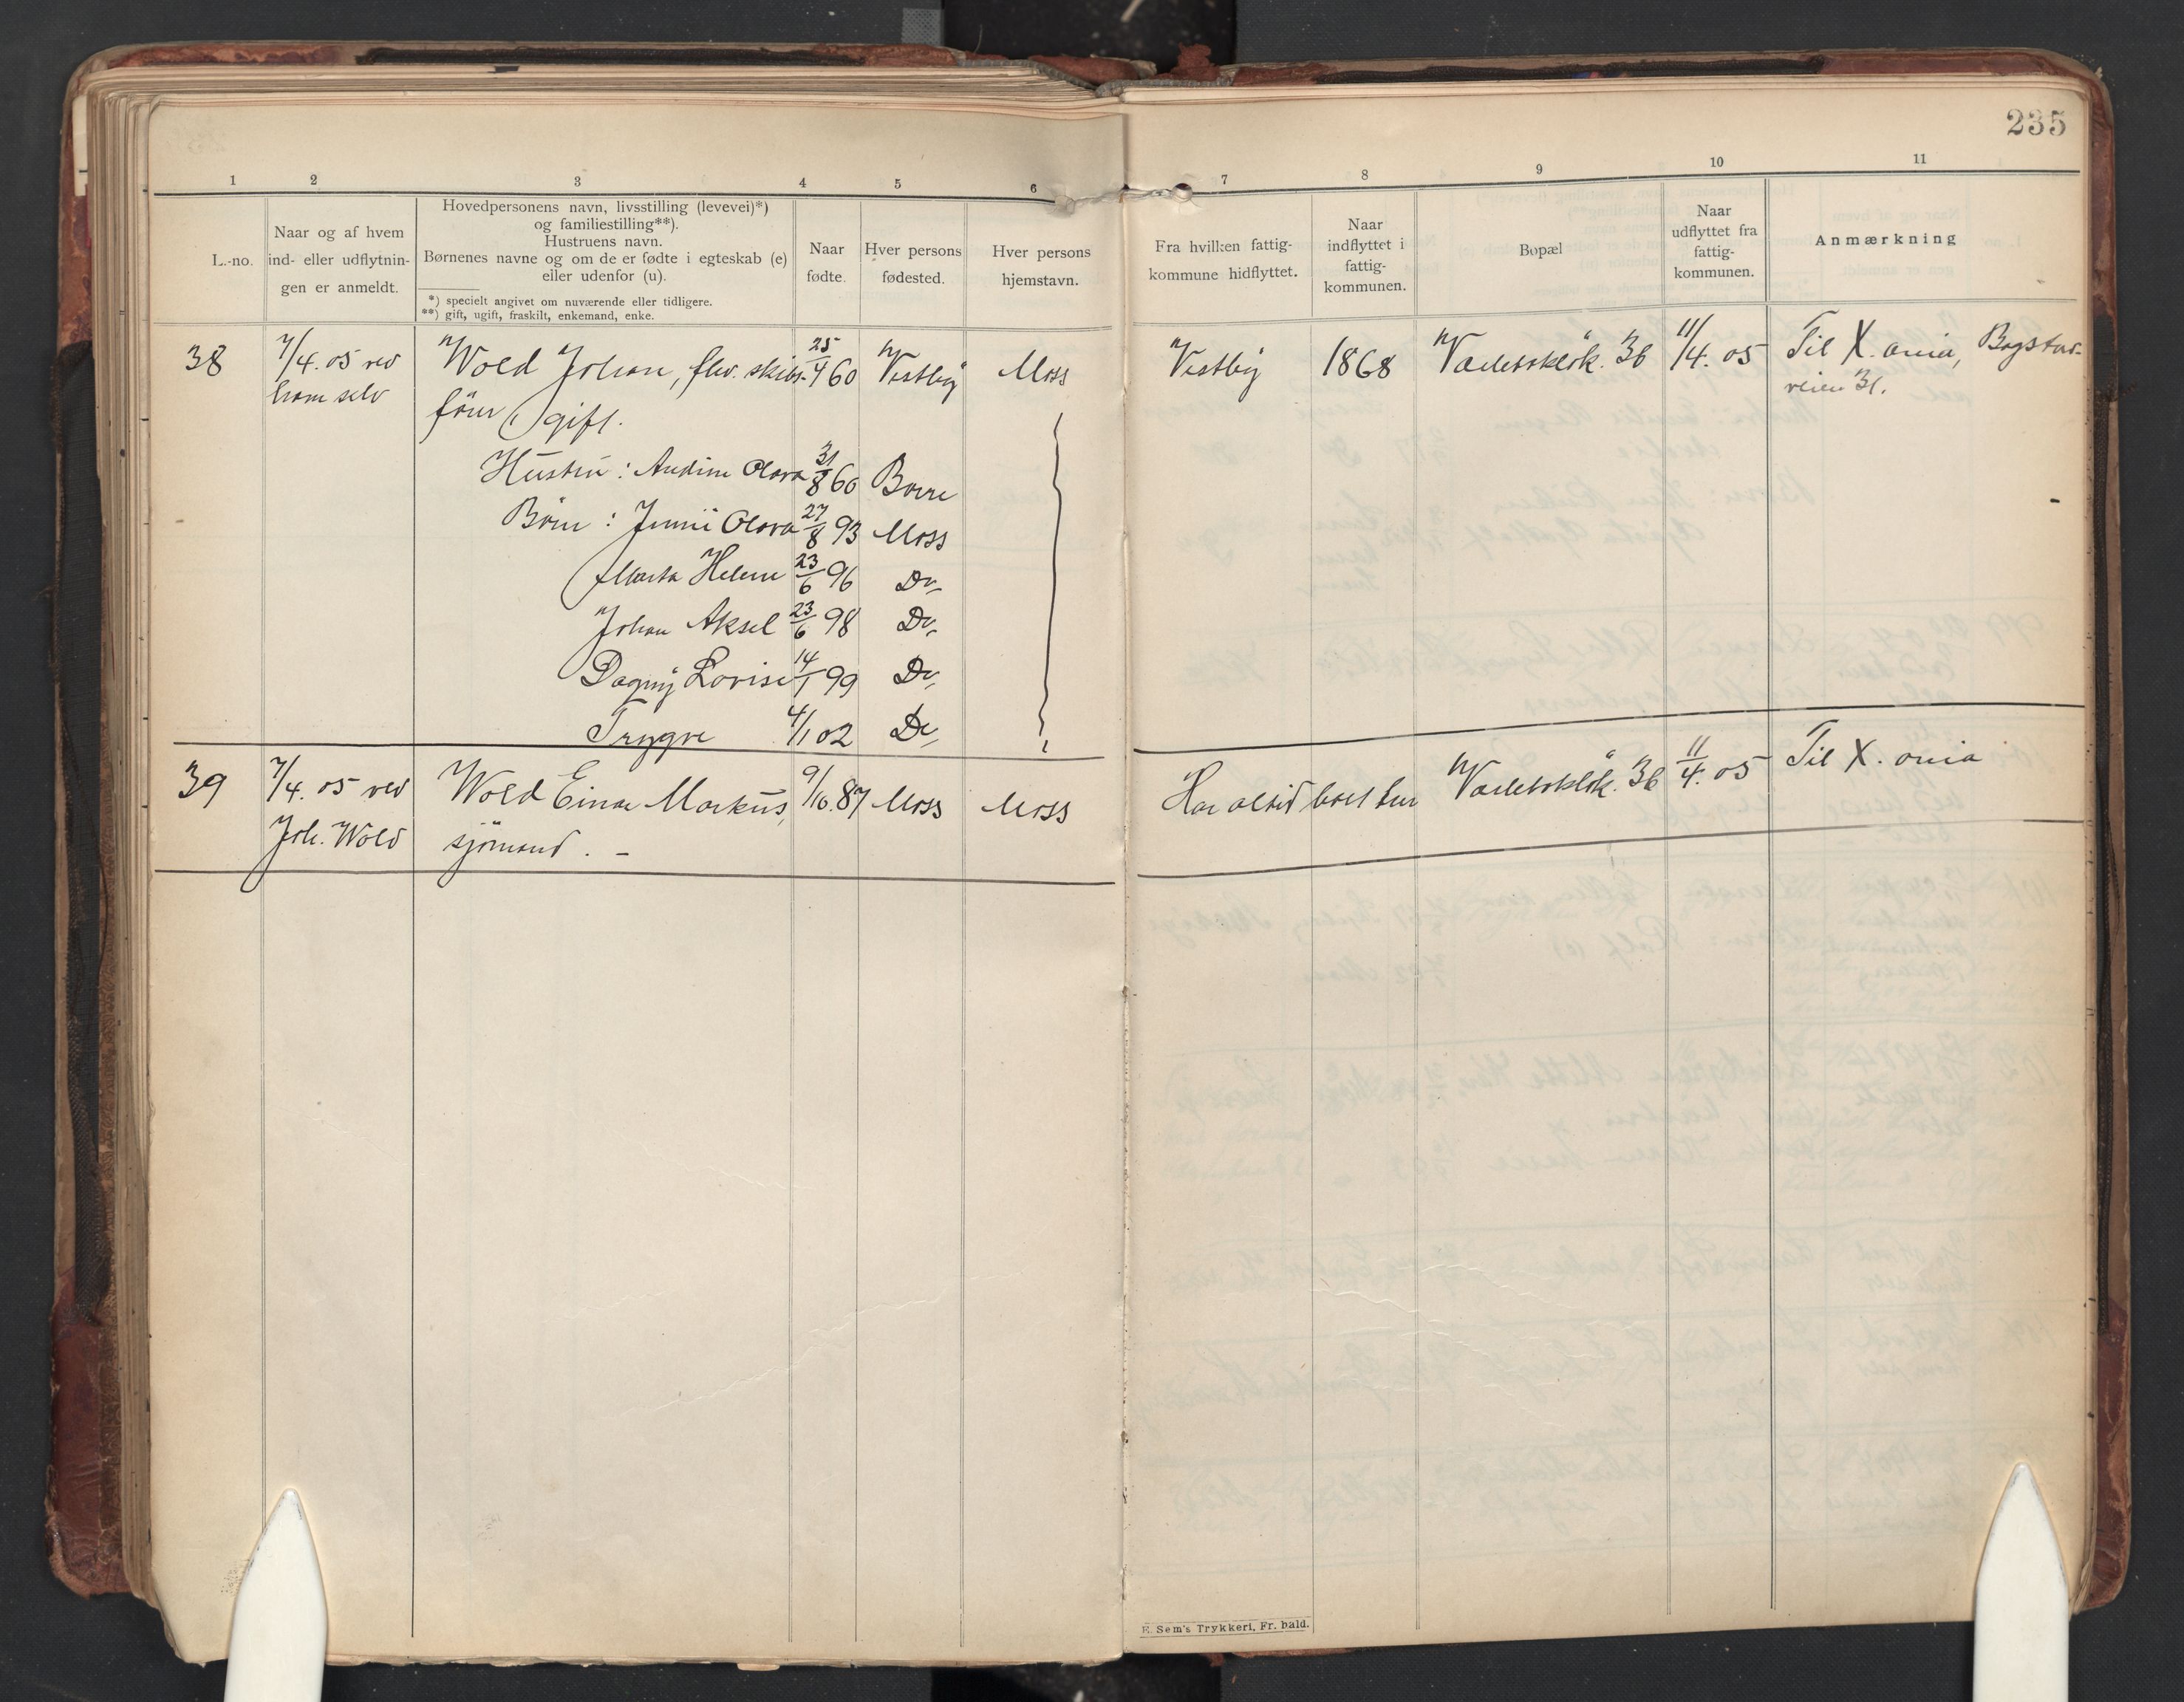 235
1 2 3 4 5 6 7 8 9 10 11
L.-no.
Naar og af hvem
ind- eller udflytnin-
gen er anmeldt.
Hovedpersonens navn, livsstilling (levevei)*)
og familiestilling**).
Hustruens navn.
Børnenes navne og om de er fødte i egteskab (e)
eller udenfor (u).
*) specielt angivet om nuværende eller tidligere.
**) gift, ugift, fraskilt, enkemand, enke.
Naar
fødte.
Hver persons
fødested.
Hver persons
hjemstavn.
Fra hvilken fattig-
kommune hidflyttet.
Naar
indflyttet i
fattig-
kommunen.
Bopæl
Naar
udflyttet fra
fattig-
kommunen.
Anmærkning
38 7/4. 05 ved Wold Johan, skibs- 25/4 60 Vestby Moss Vestby 1868 36 11/4. 05 Til X.ania, Bogstad-
ham selv fører, gift. veien 31.
Hustru : Andine Olava 31/8 60 Borre
Børn : Jenni Olava 27/8 93 Moss
Marta Helene 23/6 96 Do
Johan Aksel 23/6 98 Do
Dagny Lovise 14/1 99 Do
Trygve 4/1 02 Do
39 7/4. 05 ved Wold Einar Markus, 9/10. 87 Moss Moss Har altid boet her 36 11/4. 05 Til X.ania
Joh. Wold sjömand. –
E. Sem's Trykkeri, Fr. hald.